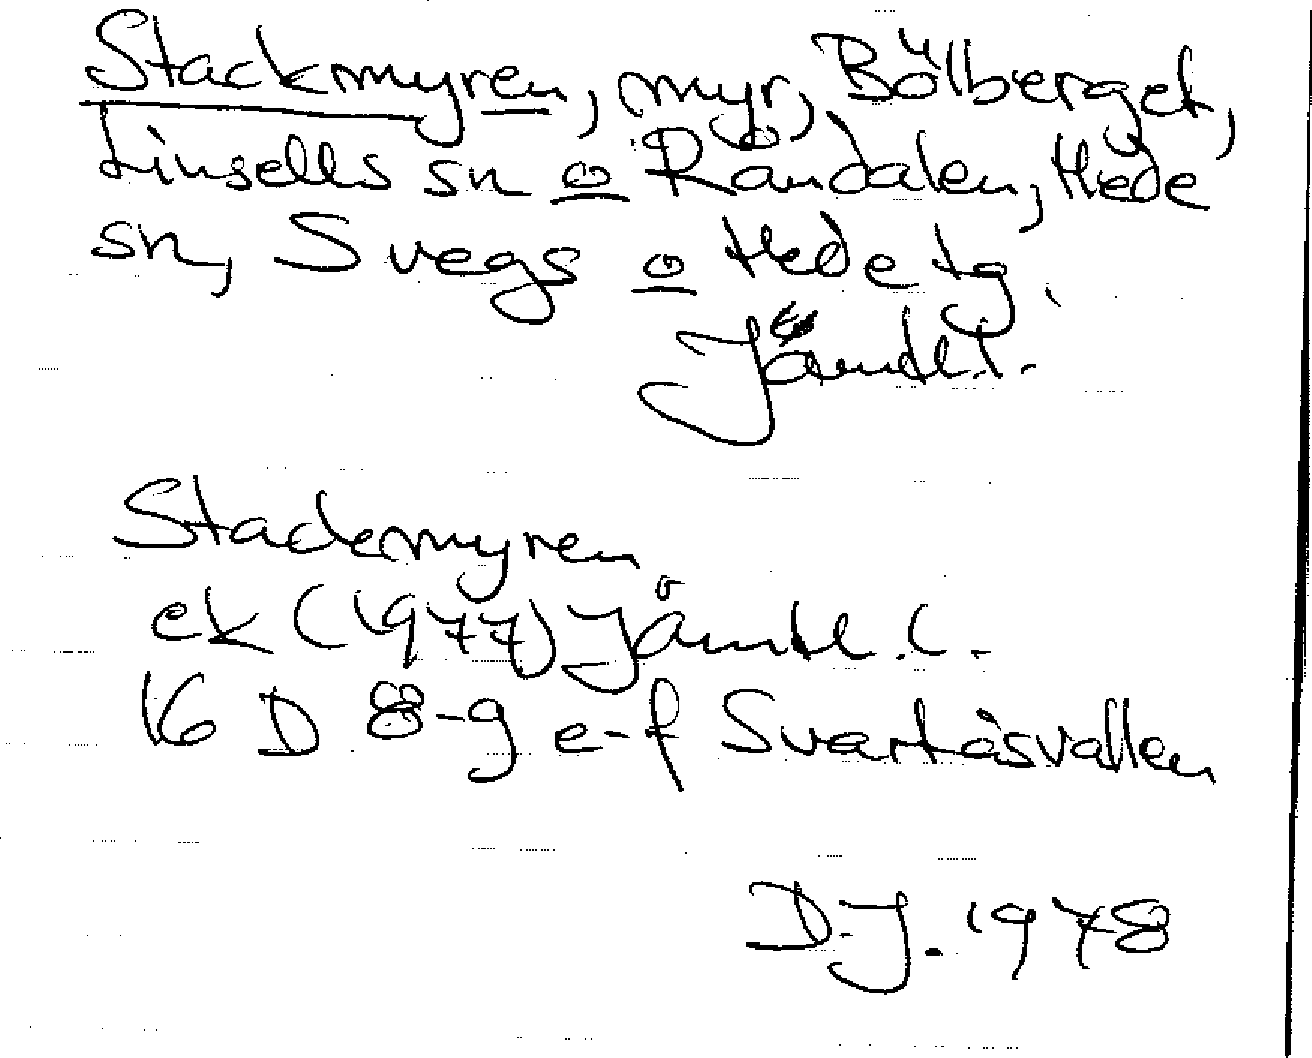 Stackmyren, myr, Bölberget,
Linsells sn o Råndalen, Hede
sn, Svegs o Hede tg.
Jämtl.l.
Stackmyren
ek (1977) Jämtl.l.
16 D 8-9 e-f Svartåsvallen
D.J. 1978